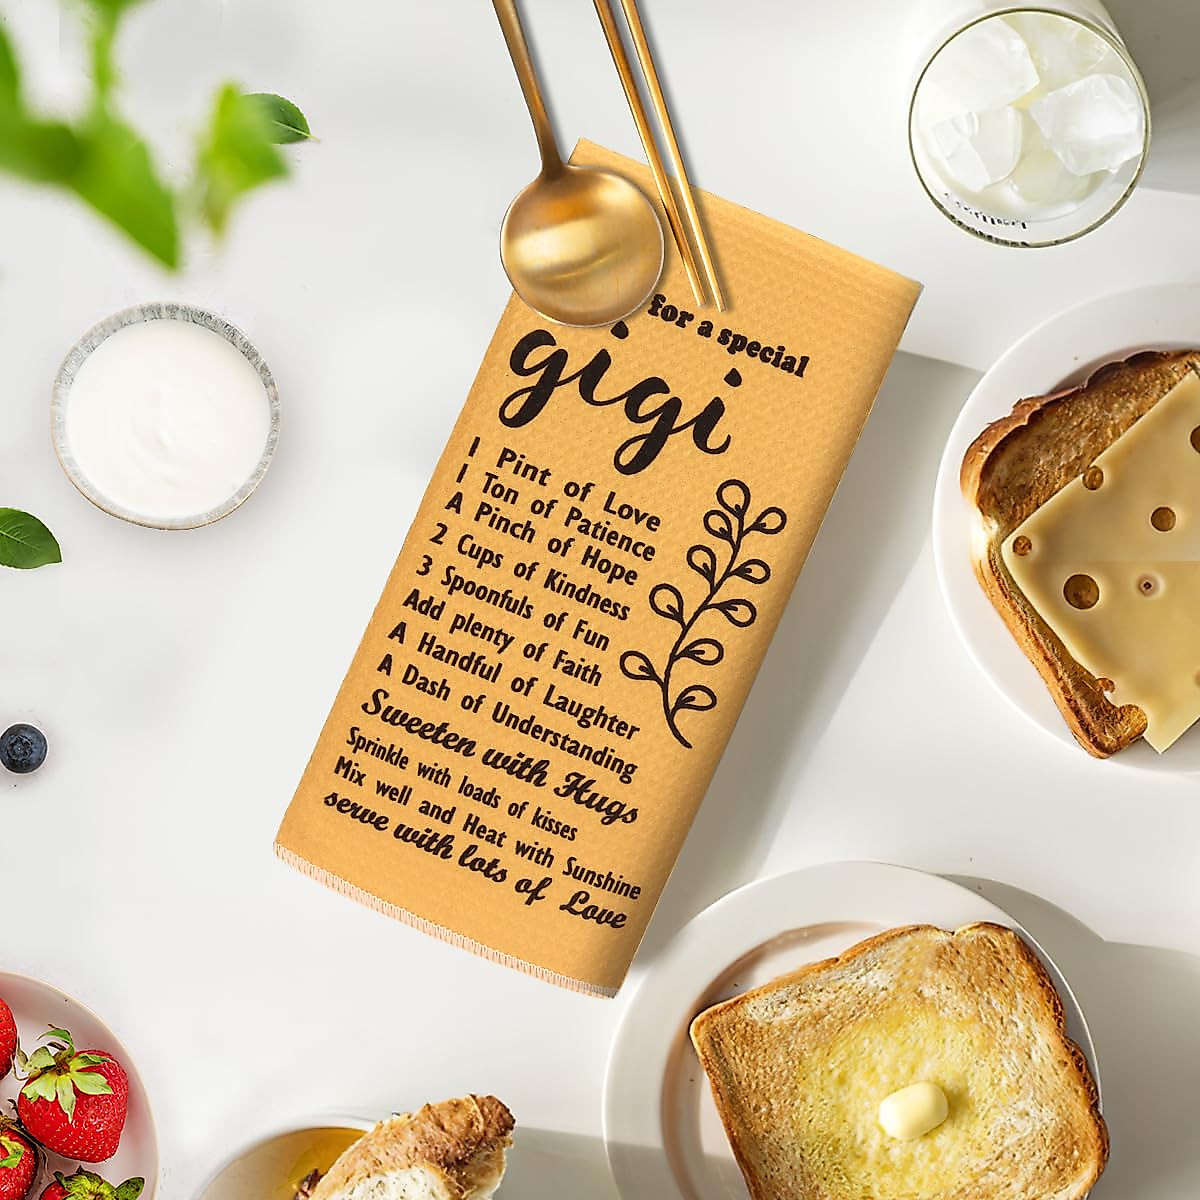 for a special
gigi
1 Pint of Love
1 Ton of Patience
A Pinch of Hope
2 Cups of Kindness
3 Spoonfuls of Fun
Add plenty of Faith
A Handful of Laughter
A Dash of Understanding
Sweeten with Hugs
Sprinkle with loads of kisses
Mix well and Heat with Sunshine
serve with lots of Love